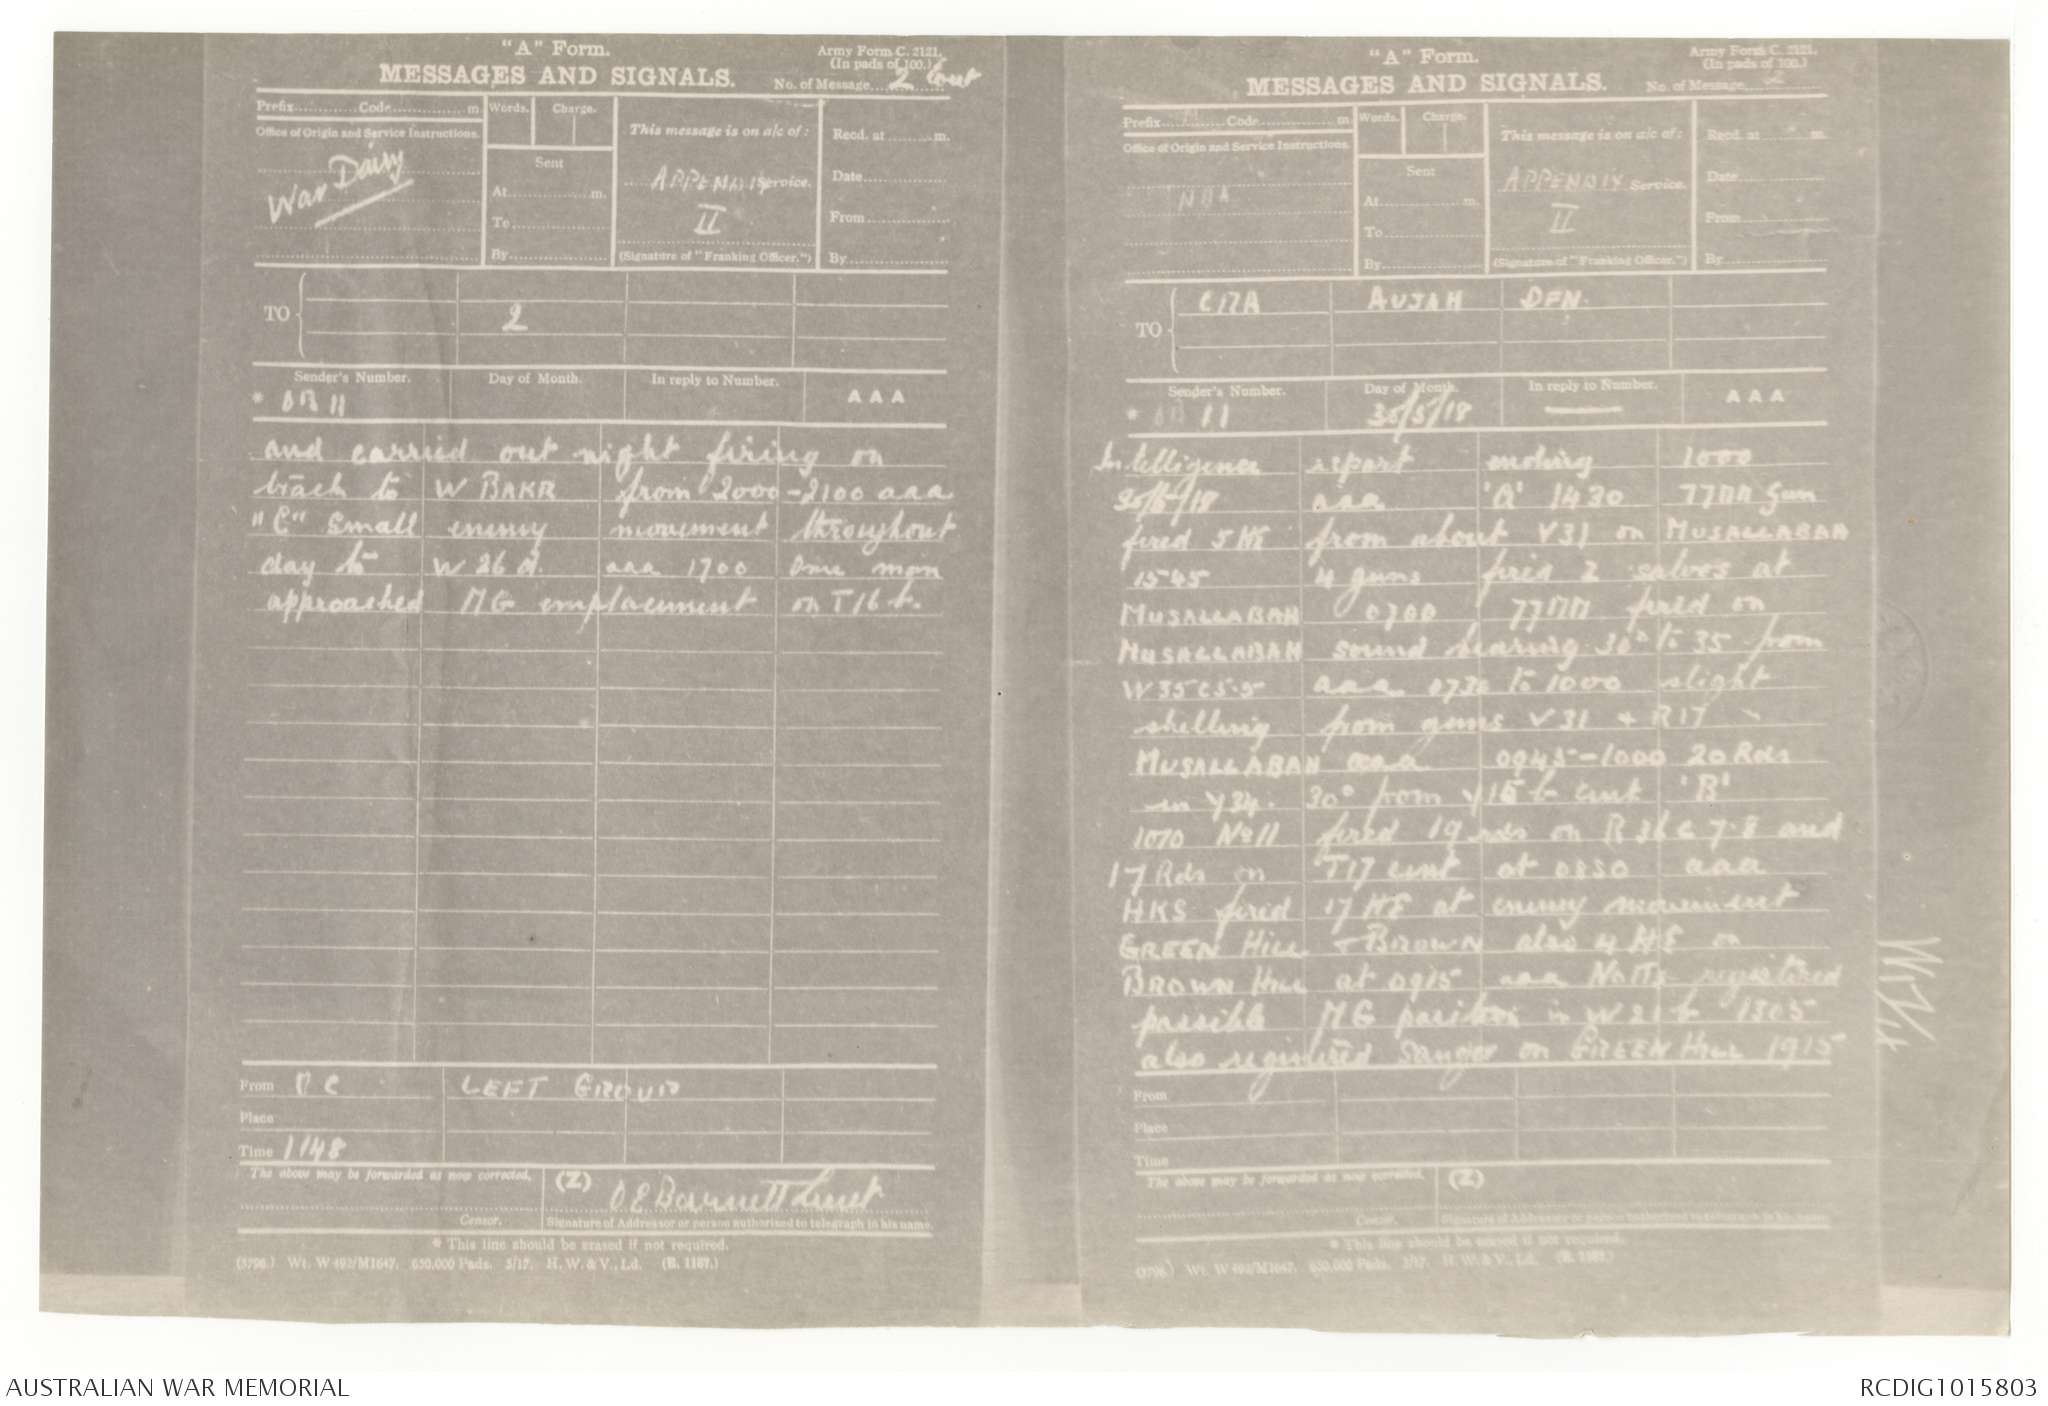 "A" Form.
MESSAGES AND SIGNALS.
Army Form C. 2121.
(In pads of 100.)
No. of Message 2 Cont
Prefix Code m
Words. Charge.
Office of Origin and Service Instructions.
War Dairy
Sent
At m.
To
By
This message is on a/c of:
APPENDIX Service.
II
(Signature of "Franking Officer.")
Recd. at m.
Date
From
By
TO
2
Sender's Number. Day of Month. In reply to Number. AAA
* 11
and carried out night firing on
track to W BAKR from 2000-2100 aaa
"C" Small enemy movement throughout
day to W 26 d. aaa 1700 One man
approached MG emplacement on T16 b.
From O C LEFT GROUP
Place
Time 1148
The above may be forwarded as now corrected. (Z)
O E Barnett Lieut
Censor. Signature of Addressor or person authorised to telegraph in his name.
* This line should be erased if not required.
(3796.) Wt. W 492/M1647. 650,000 Pads. 5/17. H. W. & V., Ld. (E. 1187.)
"A" Form.
MESSAGES AND SIGNALS.
Army Form C. 2121.
(In pads of 100.)
No. of Message
Prefix Code m
Words. Charge.
Office of Origin and Service Instructions.
Sent
At m.
To
By
This message is on a/c of:
APPENDIX Service.
II
(Signature of "Franking Officer.")
Recd. at m.
Date
From
By
TO
CRA AUJAH DFN.
Sender's Number. Day of Month. In reply to Number. AAA
* 11 /5/18
Intelligence report ending 1000
/18 aaa 'A' 1430 77MM Gun
fired 5 HE from about V31 on MUSALLABAH
1545 4 guns fired 2 salvos at
MUSALLABAH 0700 77MM fired on
MUSALLABAH sound bearing 30° to 35 from
W35c5.5 aaa 0730 to 1000 slight
shelling from guns V31 & R17
MUSALLABAH aaa 0945-1000 20 Rds
in Y34. 30° from cent 'B'
1070 No 11 fired 19 rds on R 36 c 7.8 and
17 Rds on T17 cent at 0850 aaa
HKS fired 17 HE at enemy movement
GREEN HILL & BROWN also 4 HE on
BROWN HILL at 0915 aaa Notts registered
possible MG position in W 21 b 1305
also registered Sangar on GREEN HILL 1915
From
Place
Time
The above may be forwarded as now corrected. (Z)
Censor. Signature of Addressor or person authorised to telegraph in his name.
* This line should be erased if not required.
(3796.) Wt. W 492/M1647. 650,000 Pads. 5/17. H. W. & V., Ld. (E. 1187.)
AUSTRALIAN WAR MEMORIAL
RCDIG1015803